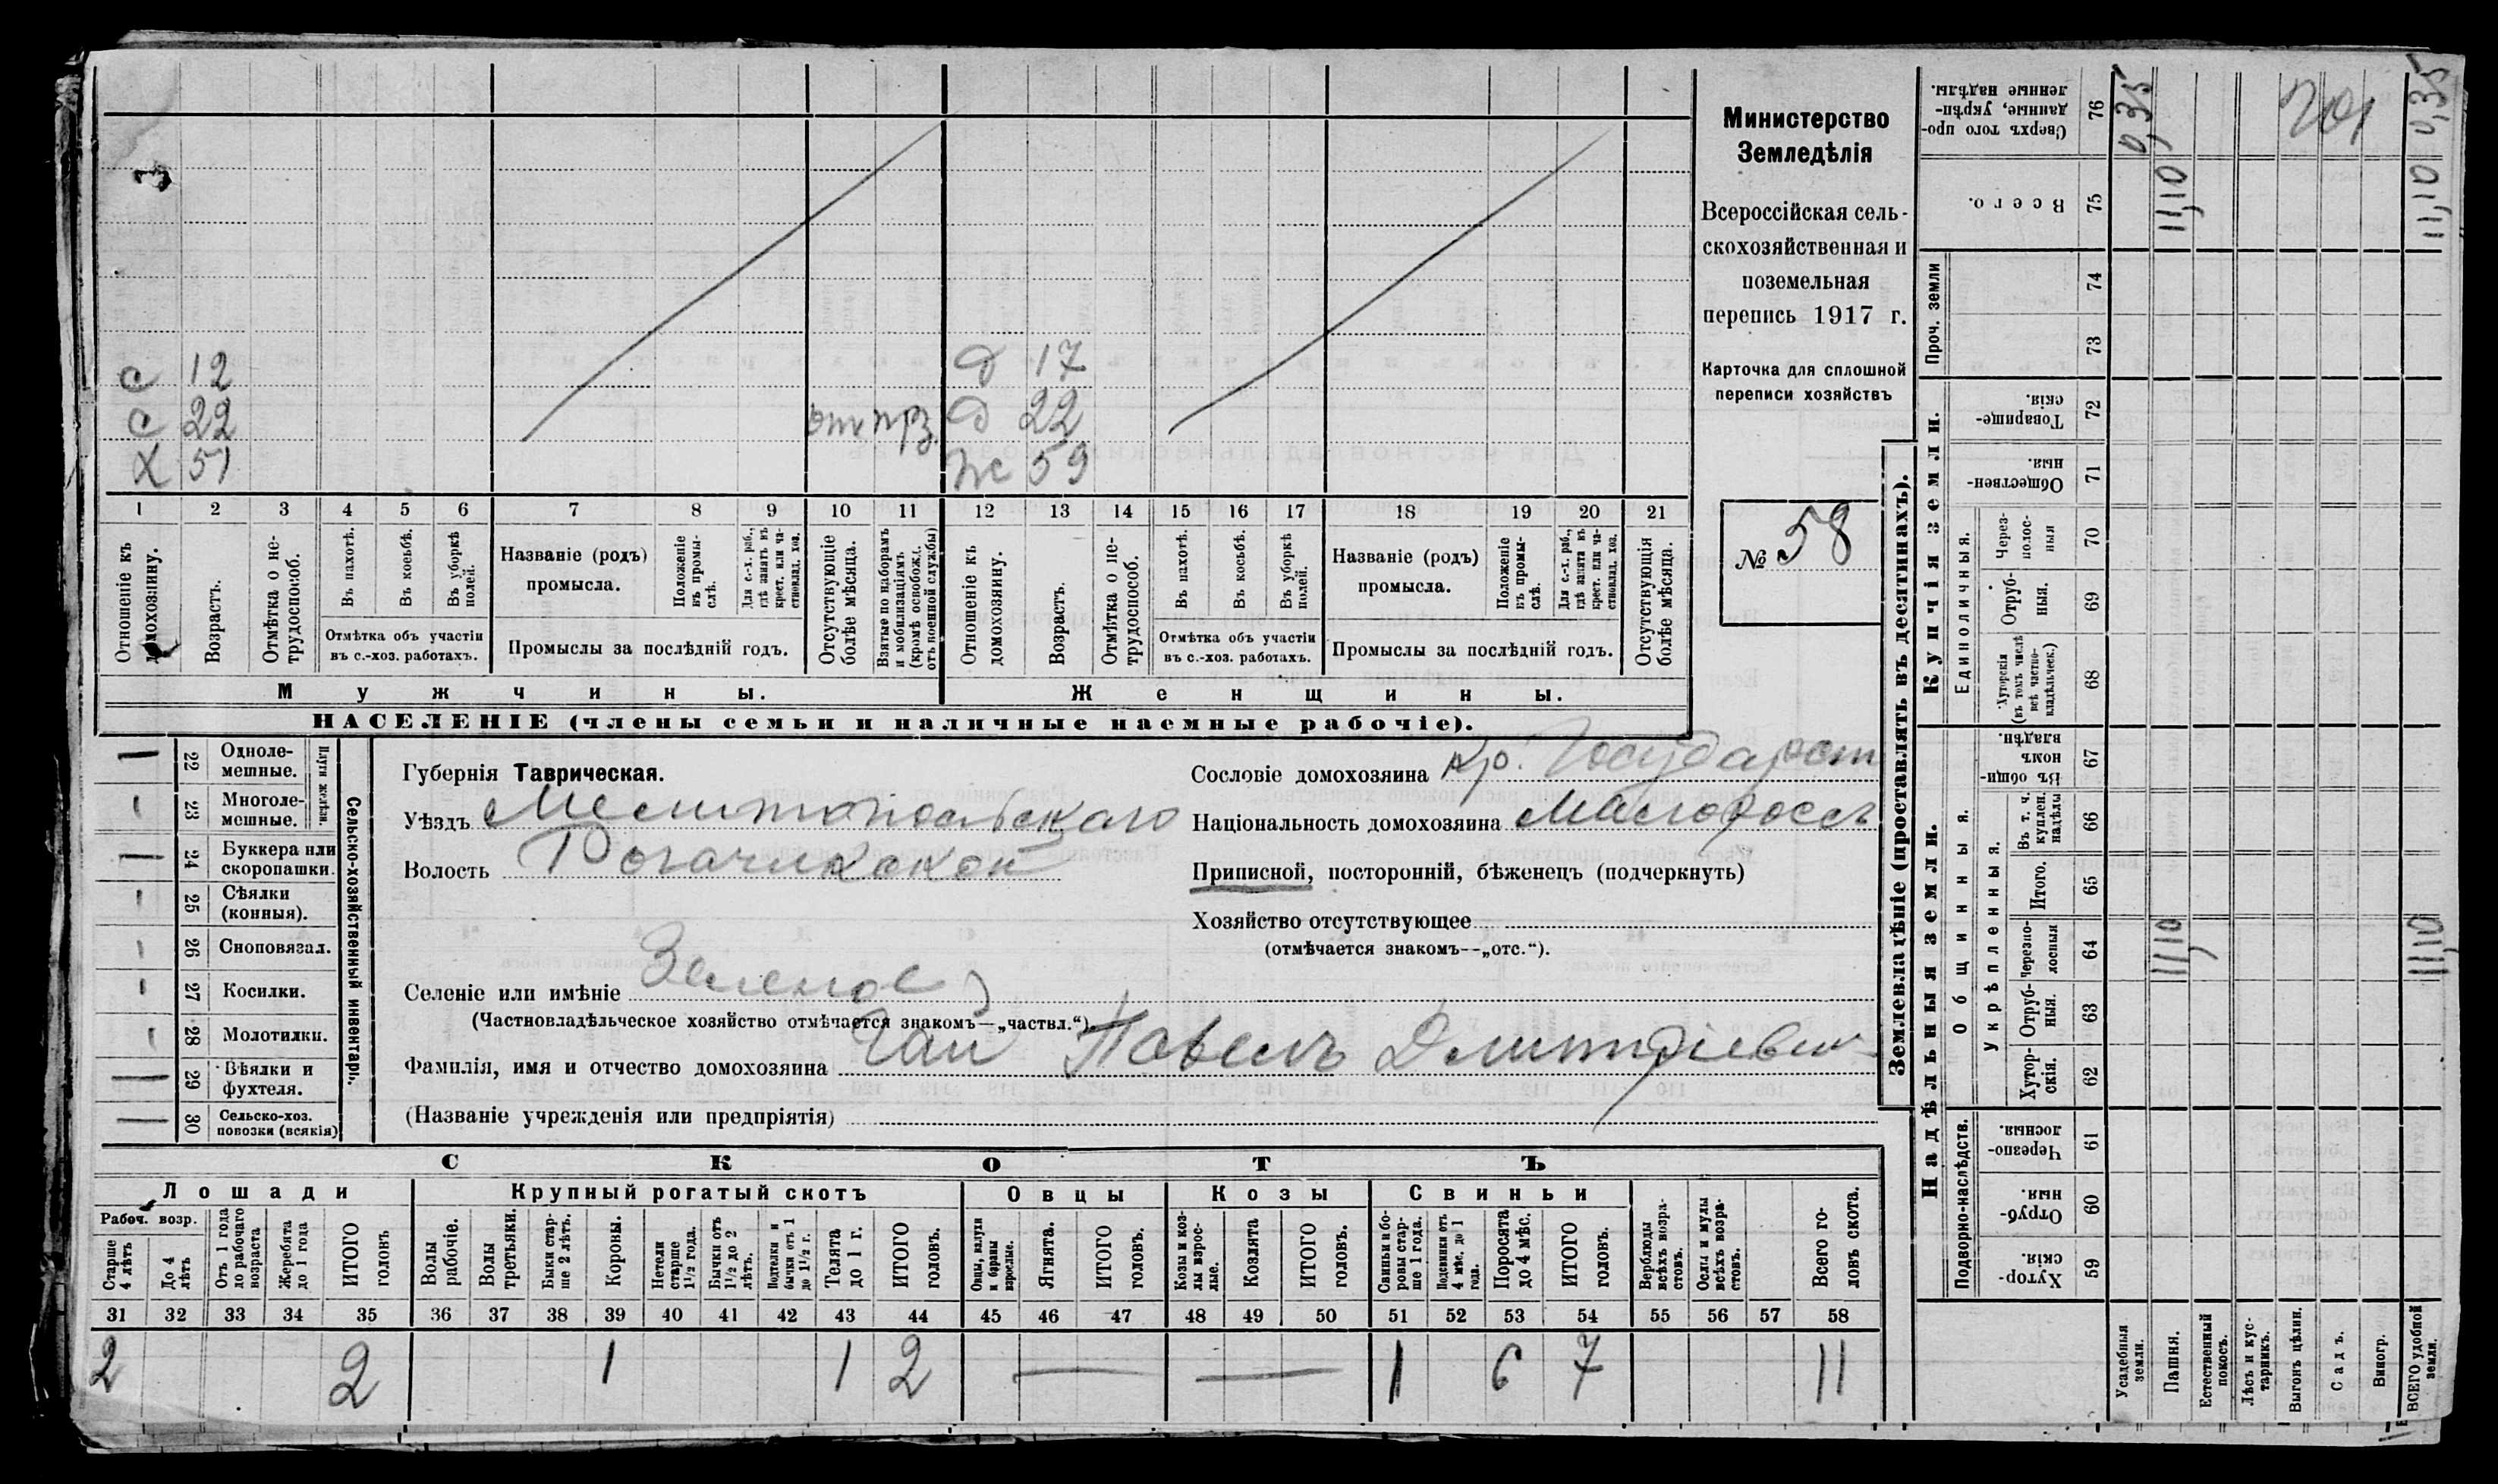 Министерство
Земледѣлія
Всероссійская сель-
скохозяйственная и
поземельная
перепись 1917 г.
Карточка для сплошной
переписи хозяйствъ
№ 58
с 12 д 17
с 22 от прз. д 22
х 51 ж 59
1 2 3 4 5 6 7 8 9 10 11 12 13 14 15 16 17 18 19 20 21
Отношеніе къ домохозяину.
Возрастъ.
Отмѣтка о не-трудоспособ.
Въ пахотѣ.
Въ косьбѣ.
Въ уборкѣ полей.
Отмѣтка объ участіи
въ с.-хоз. работахъ.
Названіе (родъ)
промысла.
Положеніе въ промы-слѣ.
Для с.-х. раб., гдѣ занятъ въ крест. или ча-стновлад. хоз.
Промыслы за послѣдній годъ.
Отсутствующіе болѣе мѣсяца.
Взятые по наборамъ и мобилизаціямъ (кромѣ освобожд. отъ военной службы)
Отношеніе къ домохозяину.
Возрастъ.
Отмѣтка о не-трудоспособ.
Въ пахотѣ.
Въ косьбѣ.
Въ уборкѣ полей.
Отмѣтка объ участіи
въ с.-хоз. работахъ.
Названіе (родъ)
промысла.
Положеніе въ промы-слѣ.
Для с.-х. раб., гдѣ занята въ крест. или ча-стновлад. хоз.
Промыслы за послѣдній годъ.
Отсутствующія болѣе мѣсяца.
Мужчины. Женщины.
НАСЕЛЕНІЕ (члены семьи и наличные наемные рабочіе).
Сельско-хозяйственный инвентарь.
Плуги желѣзн.
22 Одноле-мешные. —
23 Многоле-мешные.
24 Буккера или скоропашки.
25 Сѣялки (конныя).
26 Сноповязал.
27 Косилки.
28 Молотилки.
29 Вѣялки и фухтеля.
30 Сельско-хоз. повозки (всякія)
Губернія Таврическая.
Уѣздъ Мелитопольскаго
Волость Рогачикской
Селеніе или имѣніе Зеленое
(Частновладѣльческое хозяйство отмѣчается знакомъ—„частвл.“).
Фамилія, имя и отчество домохозяина Гай Павелъ Дмитріевич
(Названіе учрежденія или предпріятія)
Сословіе домохозяина кр. Государст
Національность домохозяина Малороссъ
Приписной, посторонній, бѣженецъ (подчеркнуть)
Хозяйство отсутствующее
(отмѣчается знакомъ—„отс.“).
СКОТЪ
Лошади Крупный рогатый скотъ Овцы Козы Свиньи
Рабоч. возр.
Старше 4 лѣтъ
До 4 лѣтъ
Отъ 1 года до рабочаго возраста
Жеребята до 1 года
ИТОГО головъ
Волы рабочіе.
Волы третьяки.
Быки стар-ше 2 лѣтъ.
Коровы.
Нетели старше 1½ года.
Бычки отъ 1½ до 2 лѣтъ.
Подтелки и бычки отъ 1 до 1½ г.
Телята до 1 г.
ИТОГО головъ.
Овцы, валухи и бараны взрослые.
Ягнята.
ИТОГО головъ.
Козы и коз-лы взрос-лые.
Козлята
ИТОГО головъ.
Свиньи и бо-ровы стар-ше 1 года.
Подсвинки отъ 4 мѣс. до 1 года.
Поросята до 4 мѣс.
ИТОГО головъ.
Верблюды всѣхъ возра-стовъ.
Ослы и мулы всѣхъ возра-стовъ.
Всего го-ловъ скота.
31 32 33 34 35 36 37 38 39 40 41 42 43 44 45 46 47 48 49 50 51 52 53 54 55 56 57 58
2 2 1 1 2 — — 1 6 7 11
Землевладѣніе (проставлять въ десятинахъ).
Надѣльныя земли. Купчія земли. Проч. земли
Подворно-наслѣдств.
Общинныя.
Укрѣпленныя.
Единоличныя.
59 Хутор-скія.
60 Отруб-ныя.
61 Черезпо-лосныя.
62 Хутор-скія.
63 Отруб-ныя.
64 Черезпо-лосныя
65 Итого.
66 Въ т. ч. куплен. надѣлы
67 Въ общи-номъ владѣн.
68 Хуторскія (въ томъ числѣ всѣ частно-владѣльческ.)
69 Отруб-ныя.
70 Через-полос-ныя
71 Обществен-ныя.
72 Товарище-скія.
73
74
75 Всего.
76 Сверхъ того про-данные, укрѣп-ленные надѣлы.
Усадебныя земли. 0,35
Пашня. 11,10 11,10
Естественный покосъ.
Лѣсъ и кус-тарникъ.
Выгонъ цѣлин.
Садъ.
Виногр.
ВСЕГО удобной земли. 11,10 11,10 0,35